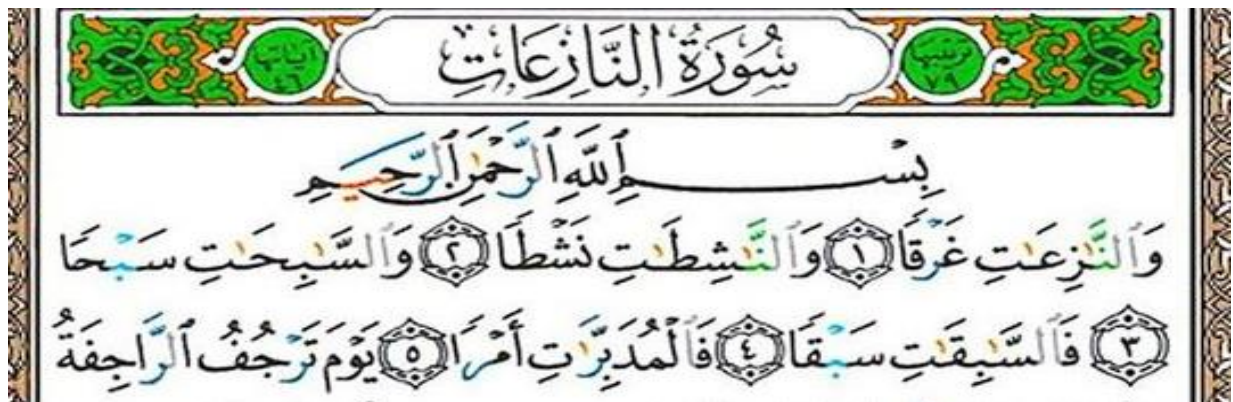 ترتيبها ٧٩ سُورَةُ النَّازِعَاتِ آياتها ٤٦
بِسْمِ ٱللَّهِ ٱلرَّحْمَٰنِ ٱلرَّحِيمِ
وَٱلنَّٰزِعَٰتِ غَرْقًا ١ وَٱلنَّٰشِطَٰتِ نَشْطًا ٢ وَٱلسَّٰبِحَٰتِ سَبْحًا
٣ فَٱلسَّٰبِقَٰتِ سَبْقًا ٤ فَٱلْمُدَبِّرَٰتِ أَمْرًا ٥ يَوْمَ تَرْجُفُ ٱلرَّاجِفَةُ